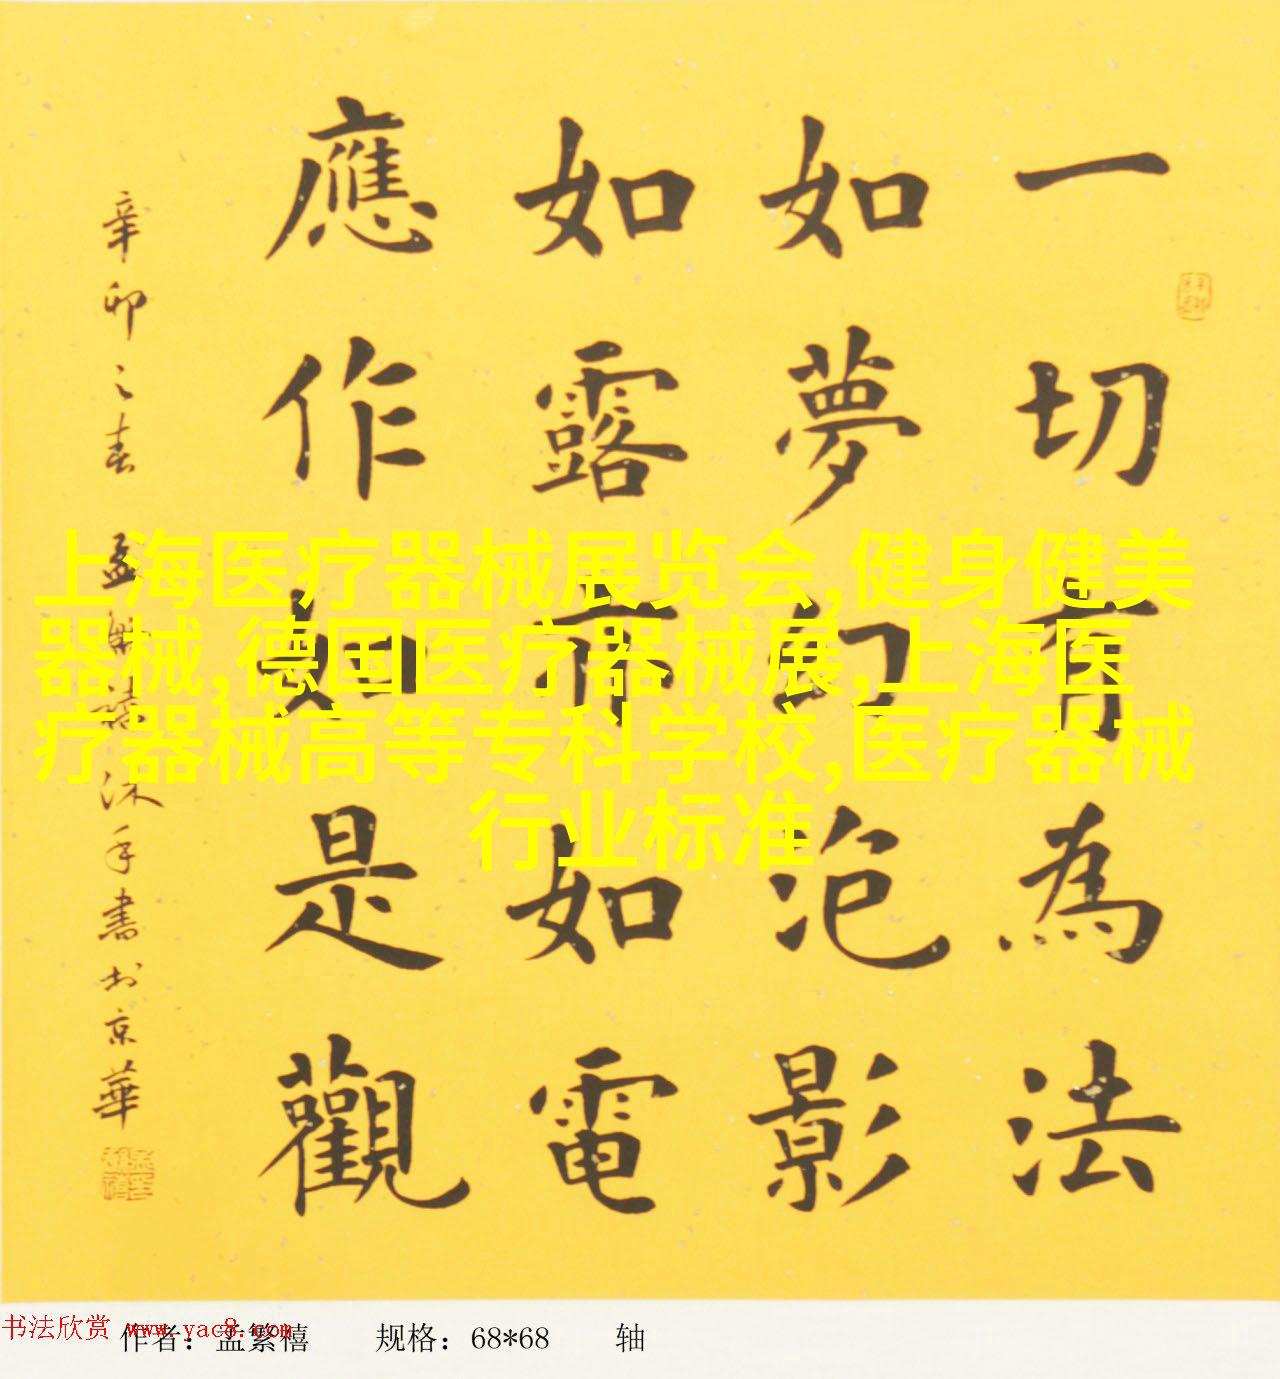 一切有為法
如夢幻泡影
如露亦如電
應作如是觀
辛卯之春 孟繁禧沐手書於京華
上海医疗器械展览会,健身健美
器械,德国医疗器械展,上海医
疗器械高等专科学校,医疗器械
行业标准
书法欣赏 www.yac8.com
作者：孟繁禧 规格：68*68 轴